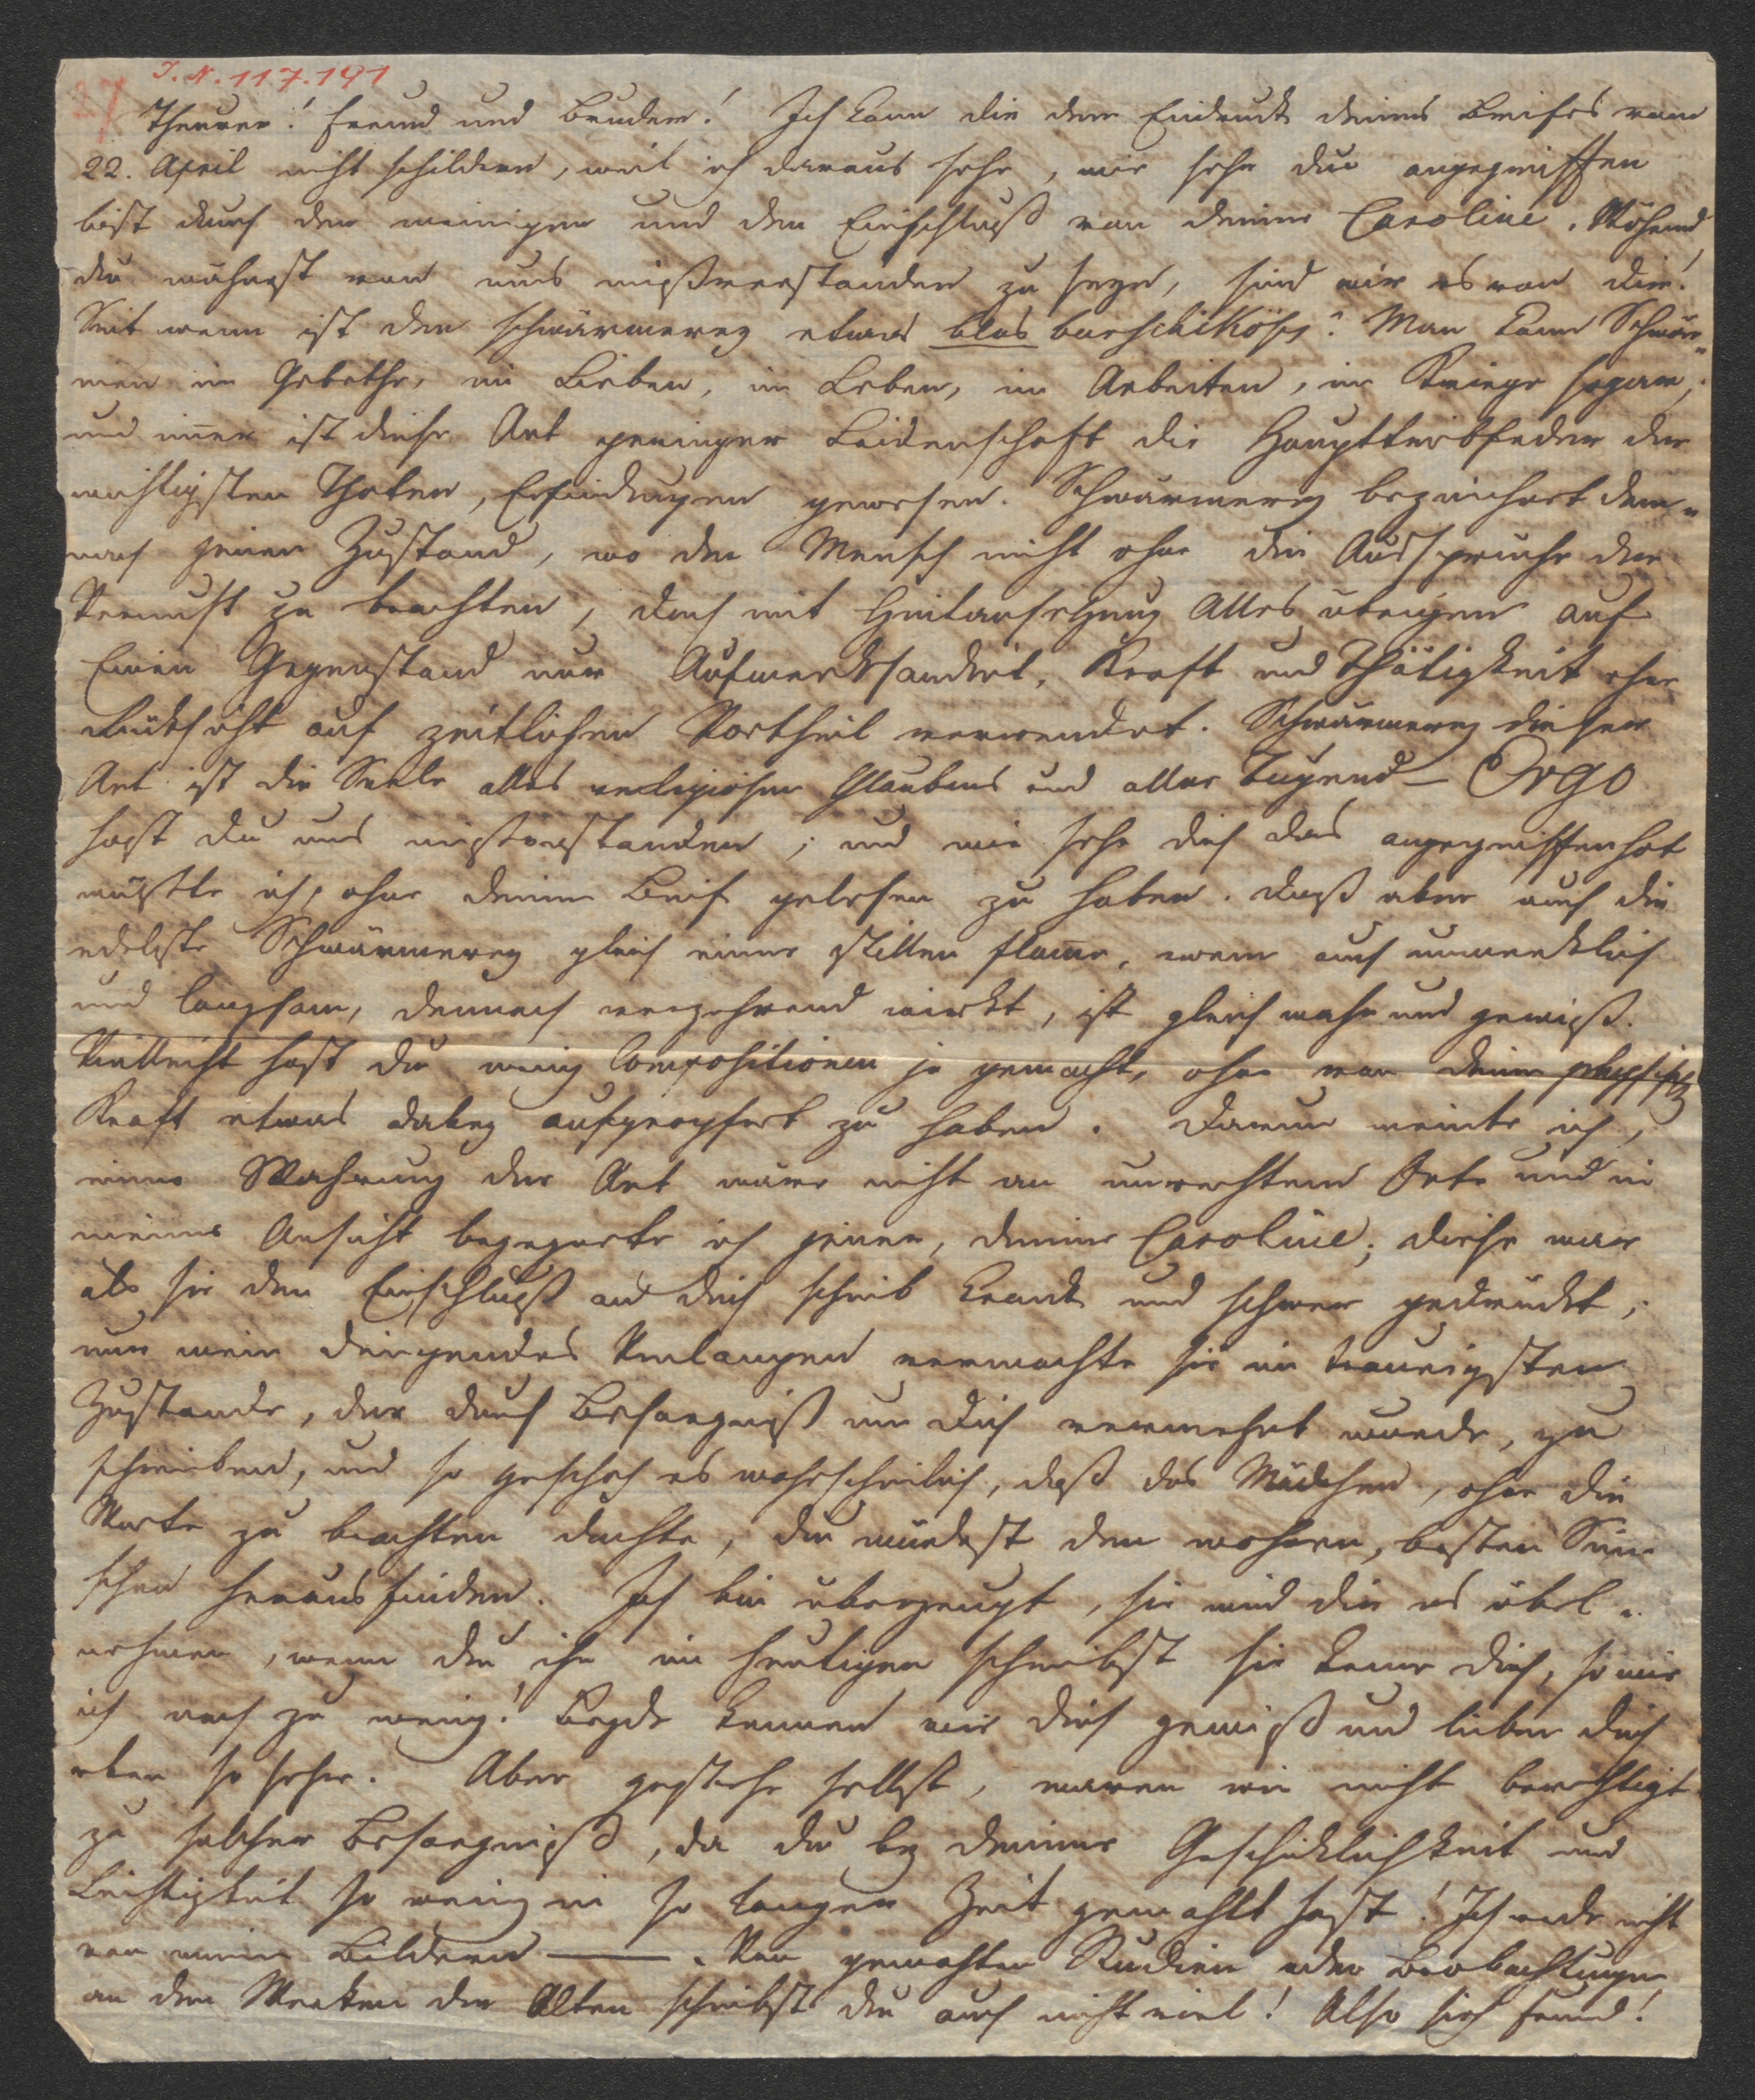 I. N. 117.191
37
Theurer! Freund und Bruder! Ich kann dir den Eindruck deines Briefes vom
22. April nicht schildern, weil ich daraus sehe, wie sehr du angegriffen
bist durch den meinigen und den Einschluß von deiner Caroline. Während
du wähnest von uns mißverstanden zu seyn, sind wir es von dir!
Seit wenn ist den Schwärmerey etwas blos burschikoses? Man kann Schwär„
men im Gebethe, im Lieben, im Leben, im Arbeiten, im Kriege sogar,
und im̄er ist diese Art geringer Leidenschaft die Haupttriebfeder der
wichtigsten Thaten, Erfindungen gewesen. Schwärmerey bezeichnet dem„
nach jenen Zustand, wo der Mensch nicht ohne die Aussprüche der
Vernunft zu beachten, doch mit Hintansetzung Alles übrigen auf
Einen Gegenstand nur Aufmerksamkeit, Kraft und Thätigkeit ohne
Rücksicht auf zeitlichen Vortheil verwendet. Schwärmerey dieser
Art ist die Seele alles religiösen Glaubens und aller Tugend – Ergo
hast du uns mißverstanden; und wie sehr dich das angegriffen hat
wüßte ich, ohne deinen Brief gelesen zu haben. Daß aber auch die
edelste Schwärmerey gleich einer stillen Flam̄e, wenn auch unmerklich
und langsam, dennoch verzehrend wirkt, ist gleich wahr und gewiß.
Vielleicht hast du wenig Compositionen je gemacht, ohne von deiner physisch
Kraft etwas dabey aufgeopfert zu haben. Darum meinte ich,
eine Mahnung der Art wäre nicht am unrechten Orte und in
meiner Ansicht begegnete ich jener, deiner Caroline; diese war
als sie den Einschluß an dich schrieb krank und schwer gedrückt;
nur mein dringendes Verlangen vermochte sie im traurigsten
Zustande, der durch Besorgniß um dich vermehrt wurde, zu
schreiben, und so geschah es wahrscheinlich, daß das Mädchen, ohne die
Worte zu beachten dachte, du würdest den wahren, besten Sinn
schon herausfinden. Ich bin überzeugt, sie wird dir es übel„
nehmen, wenn du ihr im heutigen schreibst sie kenne dich, so wie
ich noch zu wenig! Beyde kennen wir dich gewiß und lieben dich
eben so sehr. Aber gestehe selbst, waren wir nicht berechtigt
zu solcher Besorgniß, da du bey deiner Geschicklichkeit und
Leichtigkeit so wenig in so langer Zeit gemahlt hast! Ich rede nicht
von meinen Bildern ——. Von gemachten Studien oder Beobachtungen
an den Werken der Alten schreibst du auch nicht viel! Also sieh Freund!